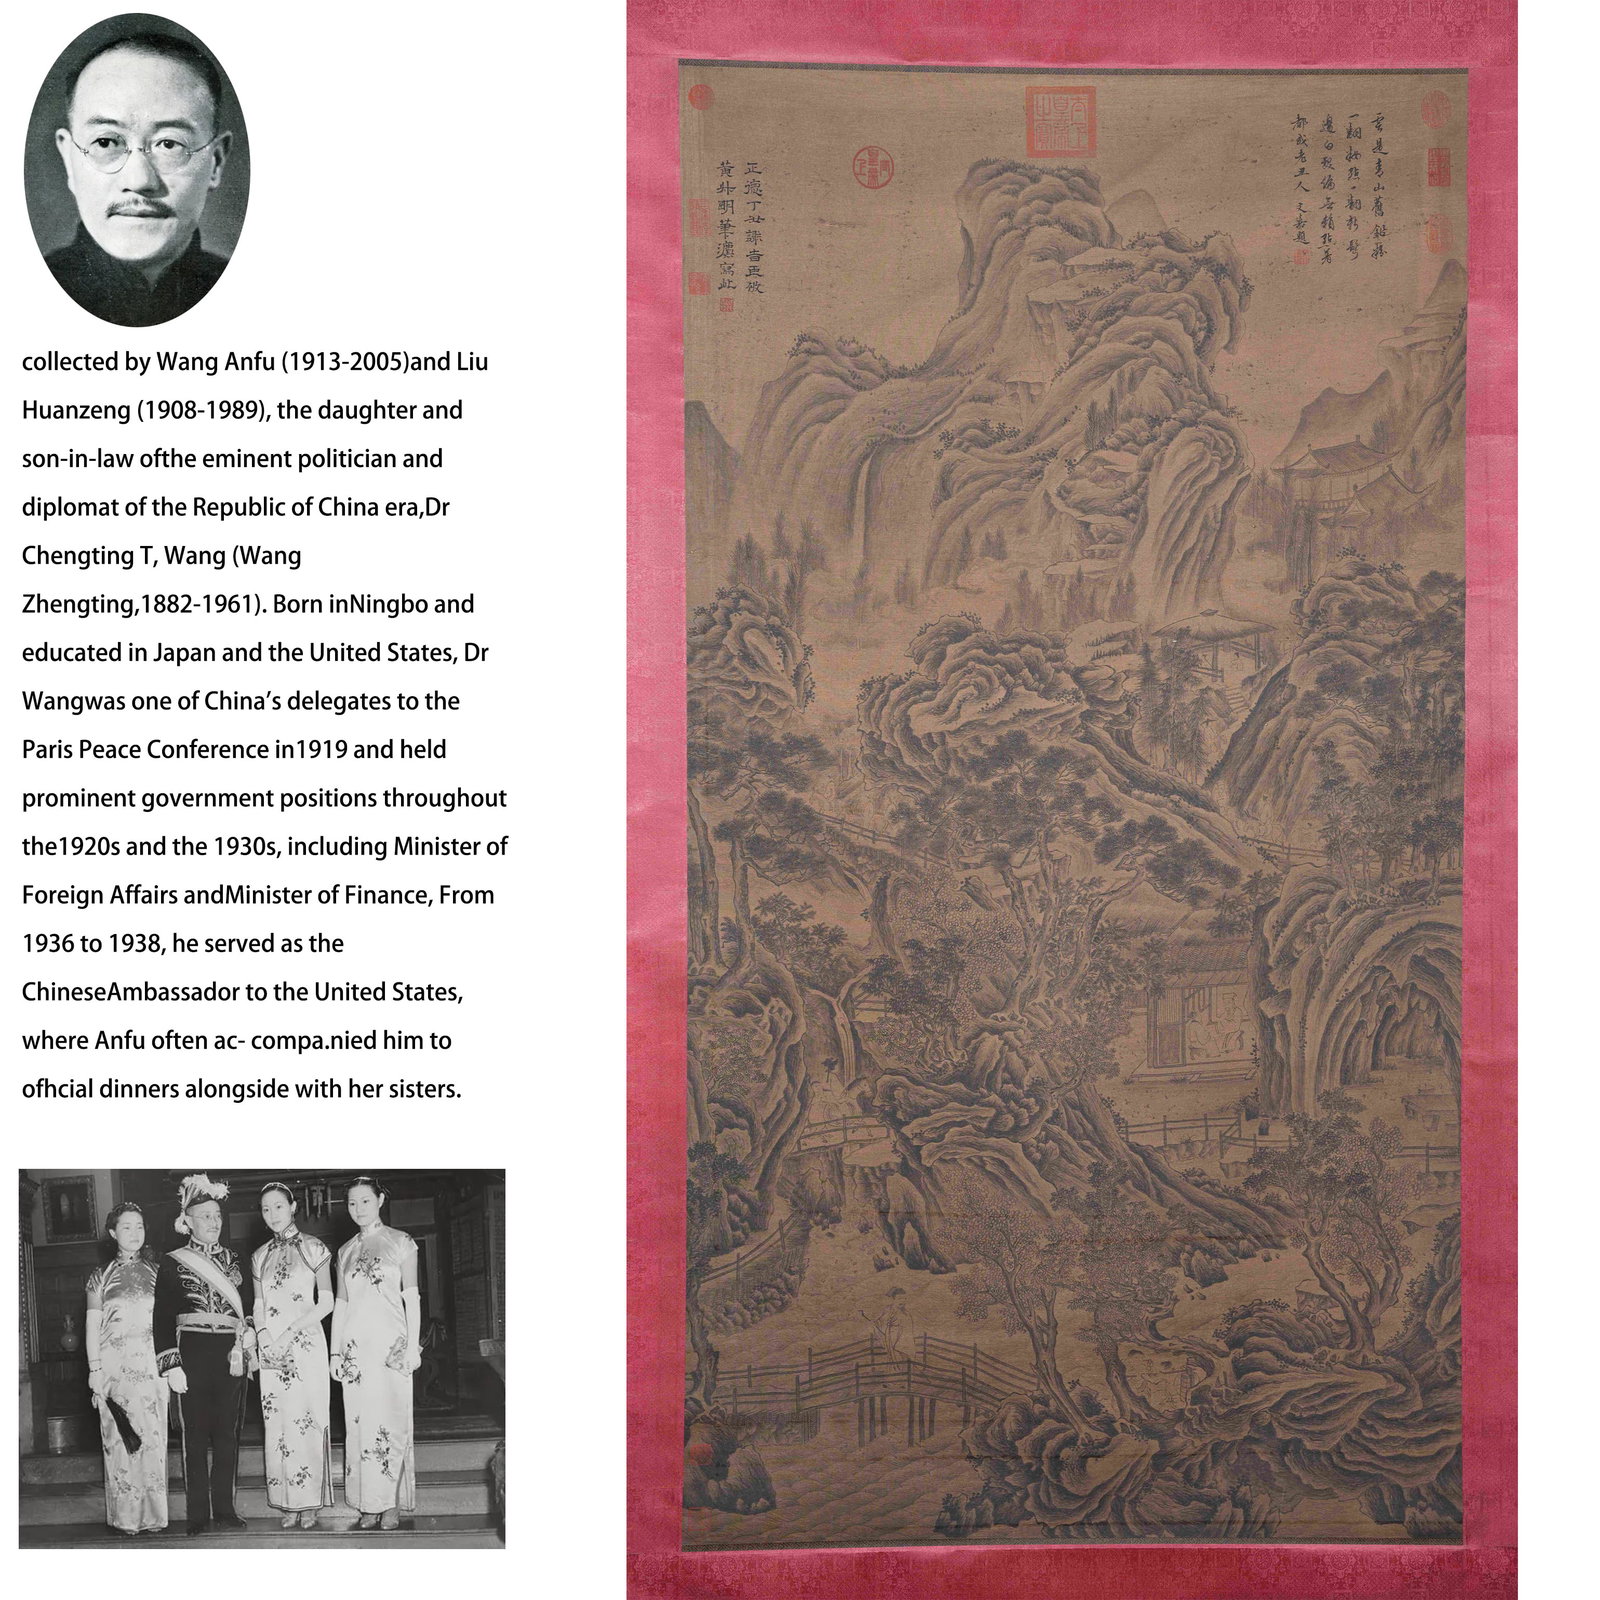 collected by Wang Anfu (1913-2005)and Liu
Huanzeng (1908-1989), the daughter and
son-in-law ofthe eminent politician and
diplomat of the Republic of China era,Dr
Chengting T, Wang (Wang
Zhengting,1882-1961). Born inNingbo and
educated in Japan and the United States, Dr
Wangwas one of China’s delegates to the
Paris Peace Conference in1919 and held
prominent government positions throughout
the1920s and the 1930s, including Minister of
Foreign Affairs andMinister of Finance, From
1936 to 1938, he served as the
ChineseAmbassador to the United States,
where Anfu often ac- compa.nied him to
ofhcial dinners alongside with her sisters.
雲是青山舊鉛粉
一翻 一翻新鬢
邊白髮偏無賴
老丑人 文嘉題
正德丁丑
寫此